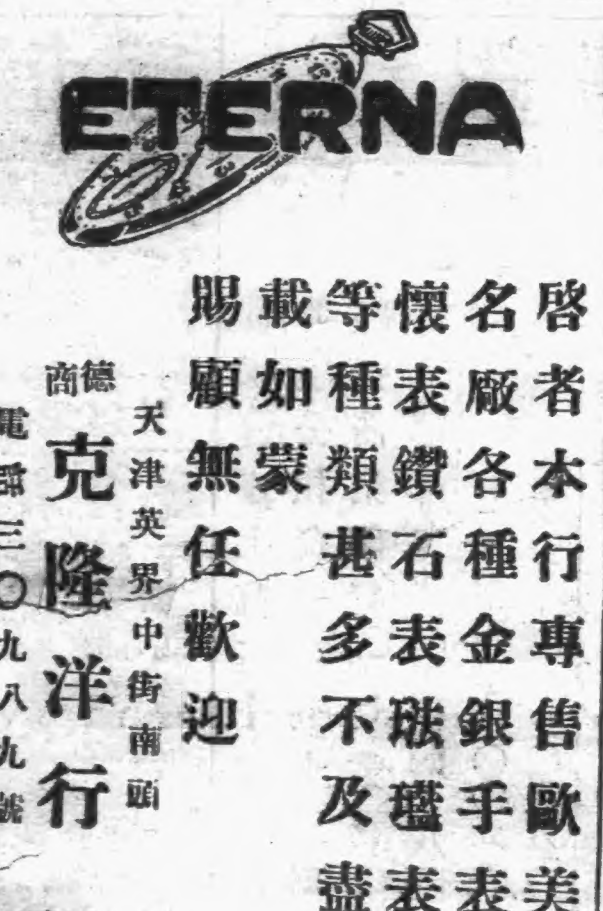 ETERNA
啓者本行專售歐美
名廠各種金銀手表
懷表鑽石表琺瑯表
等種類甚多不及盡
載如蒙
賜顧無任歡迎
天津英界中街南頭
德商
克隆洋行
電話三〇九八九號